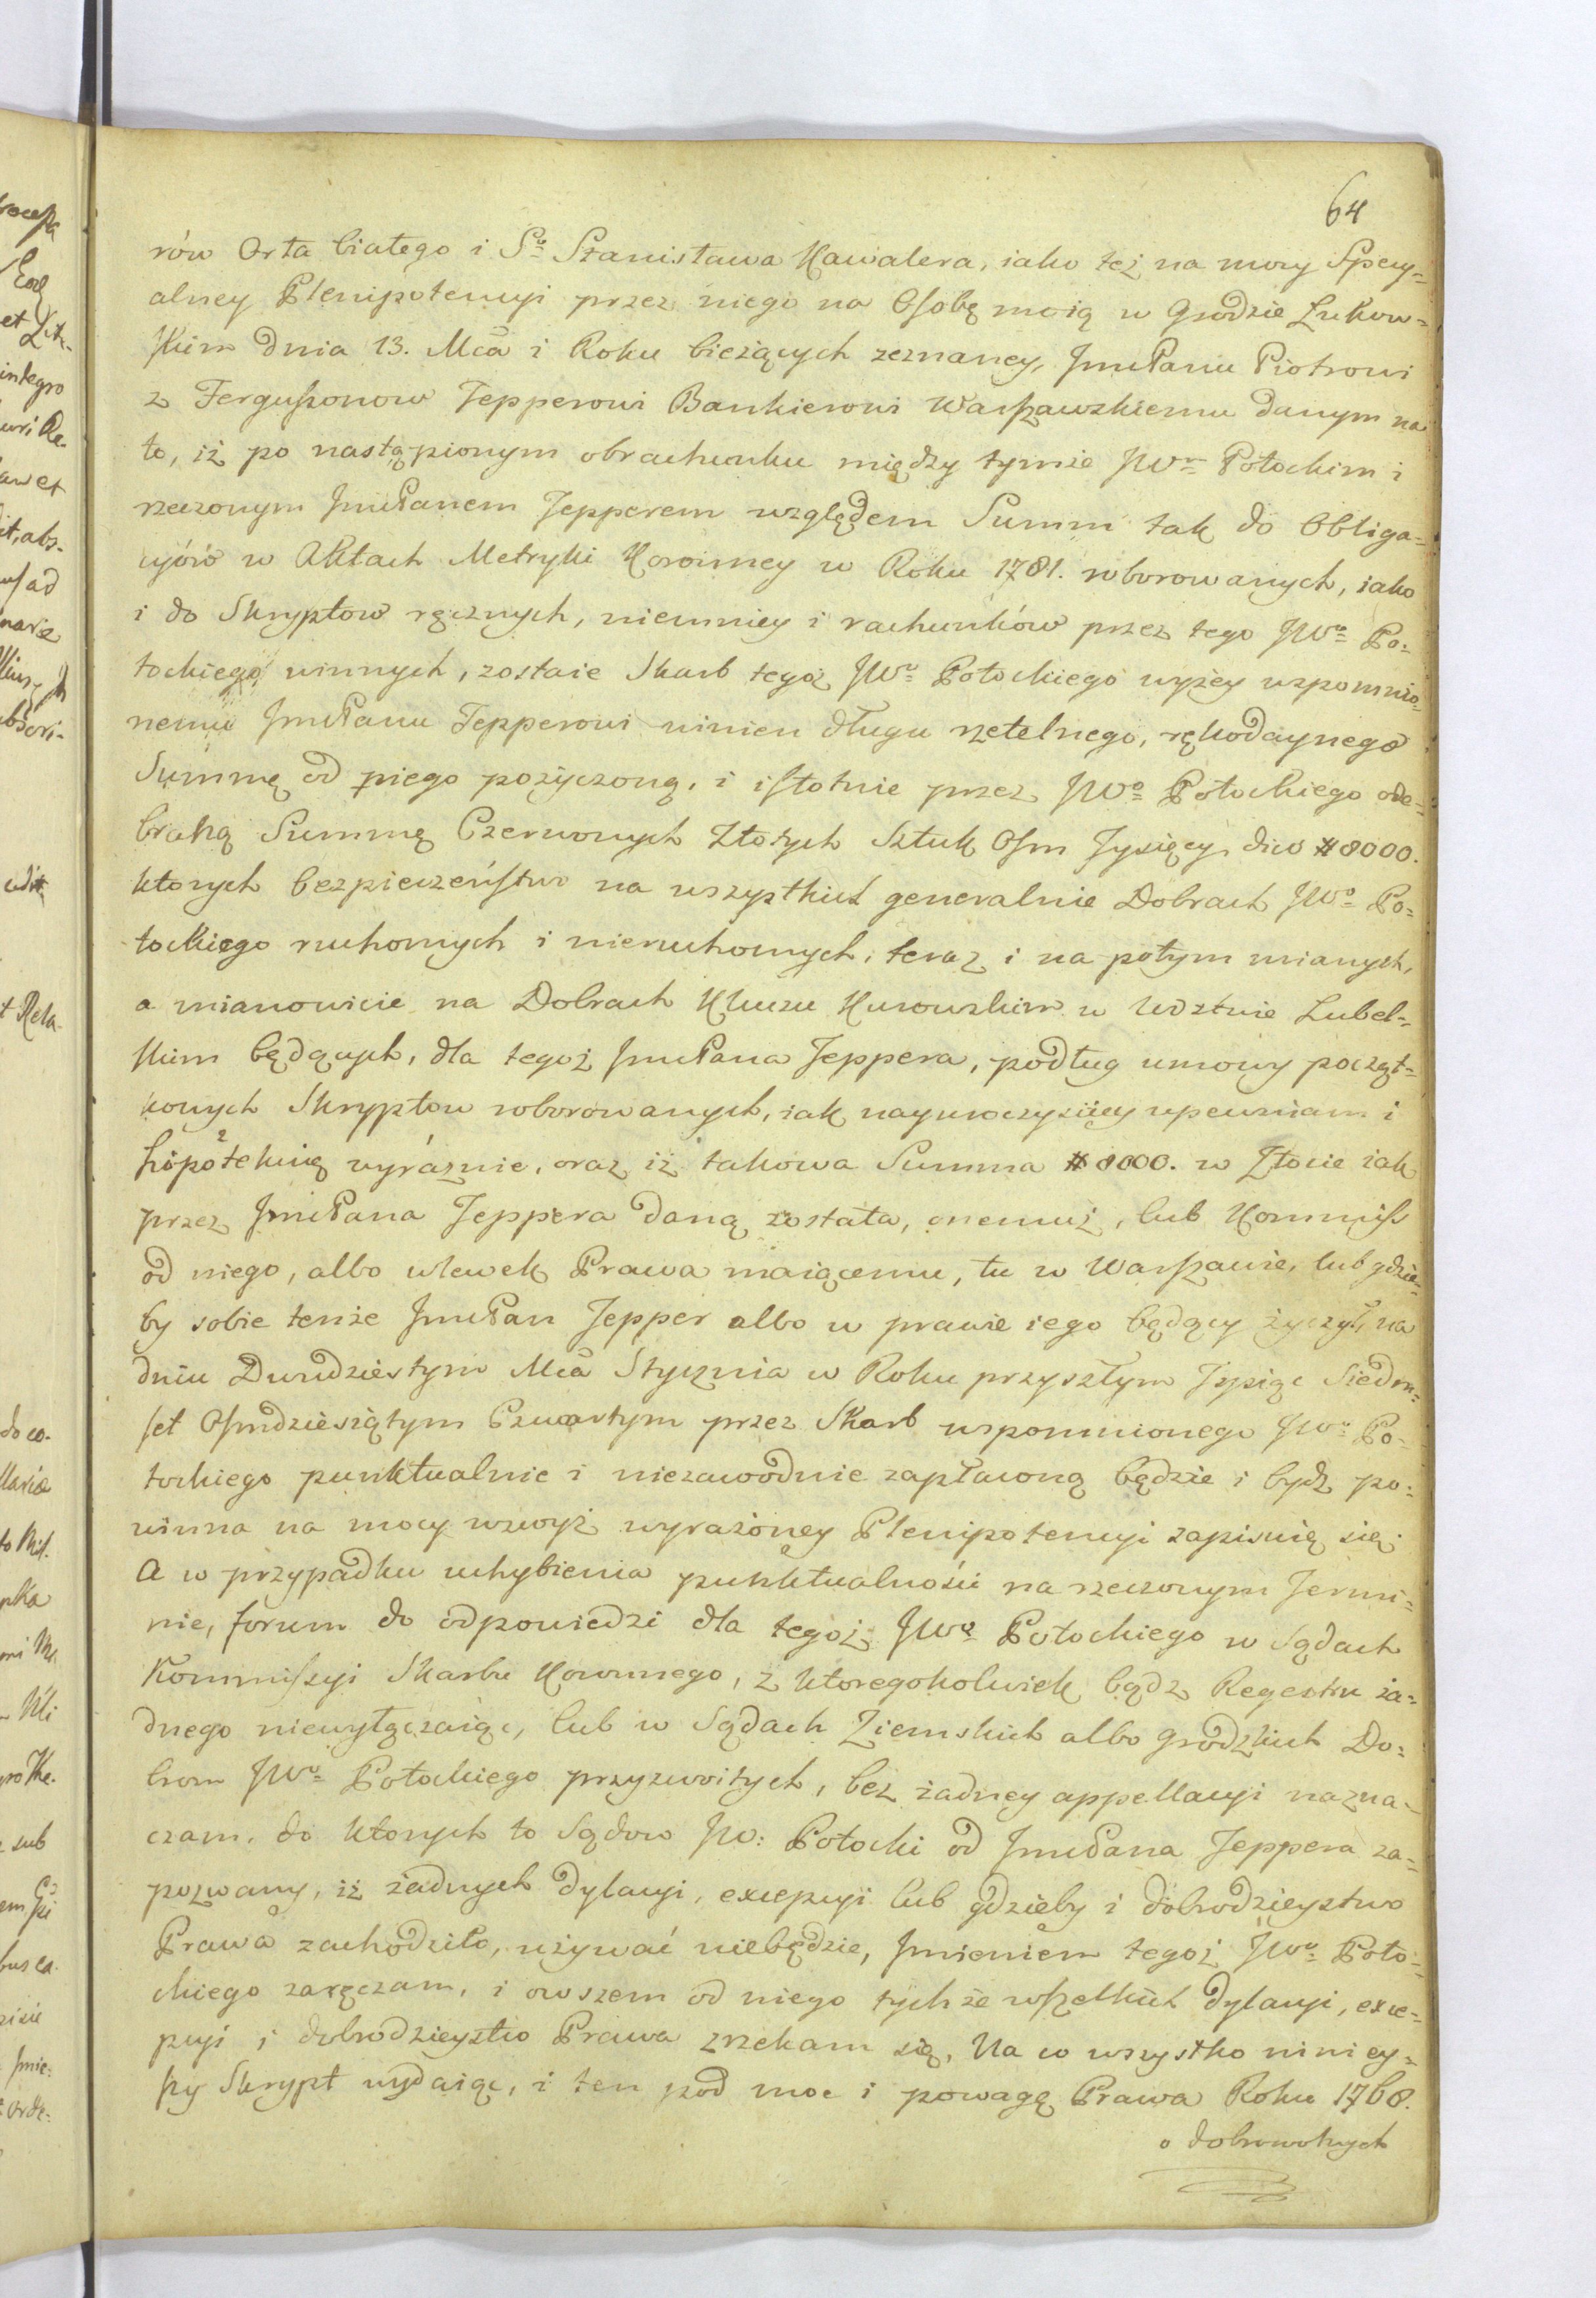 64
rów Orła białego i Sº Stanisława Kawalera, iako też na mocy Specy-
alney Plenipotencyi przez niego na Osobę moią w Grodzie Łukow-
skim dnia 13. Mca i Roku bieżących zeznaney, JmćPanu Piotrowi
z Fergussonow Tepperowi Bankierowi Warszawskiemu danym na
to, iż po nastąpionym obrachunku między tymże JWm Potockim i
rzeczonym JmćPanem Tepperem względem Summ tak do Obliga-
cyiów w Aktach Metryki Koronney w Roku 1781. roborowanych, iako
i do Skryptow ręcznych, niemniey i rachunków przez tego JWo Po-
tockiego winnych, zostaie Skarb tegoż JWo Potockiego wyżey wspomnio-
nemu JmćPanu Tepperowi winien długu rzetelnego, rękodaynego
Summę od niego pożyczoną, i istotnie przez JWo Potockiego ode-
braną Summę Czerwonych Złotych Sztuk Osm Tysięcy dico # 8000.
ktorych bezpieczeństwo na wszystkich generalnie Dobrach JWo Po-
tockiego ruchomych i nieruchomych, teraz i na potym mianych,
a mianowicie na Dobrach Kluczu Kurowskim w Wdztwie Lubel-
skim będących, dla tegoż JmćPana Teppera, podług umowy począt-
kowych Skryptow roborowanych, iak nayuroczyściey upewniam i
hipotekuię wyraźnie, oraz iż takowa Summa # 8000. w Złocie iak
przez JmćPana Teppera daną została, onemuż, lub Kommiss
od niego, albo wlewek Prawa maiącemu, tu w Warszawie, lub gdzie-
by sobie tenże JmćPan Tepper albo w prawie iego będący życzył, na
dniu Dwudziestym Mca Stycznia w Roku przyszłym Tysiąc Siedm-
set Osmdziesiątym Czwartym przez Skarb wspomnionego JWo Po-
tockiego punktualnie i niezawodnie zapłaconą będzie i bydź po-
winna na mocy wzwyż wyrażoney Plenipotencyi zapisuię się.
A w przypadku uchybienia punktualności na rzeczonym Termi-
nie, forum do odpowiedzi dla tegoż JWo Potockiego w Sądach
Kommissyi Skarbu Koronnego, z ktoregokolwiek bądz Regestru ża-
dnego niewyłączaiąc, lub w Sądach Ziemskich albo Grodzkich Do-
brom JWo Potockiego przyzwoitych, bez żadney appellacyi nazna-
czam, do ktorych to Sądow JW: Potocki od JmćPana Teppera za-
pozwany, iż żadnych dylacyi, excepcyi lub gdzieby i dobrodzieystwo
Prawa zachodziło, używać niebędzie, Jmieniem tegoż JWo Poto-
ckiego zaręczam, i owszem od niego tychże wszelkich dylacyi, exce-
pcyi i dobrodzieystw Prawa zrzekam się, Na co wszystko niniey-
szy Skrypt wydaiąc, i ten pod moc i powagę Prawa Roku 1768.
o dobrowolnych